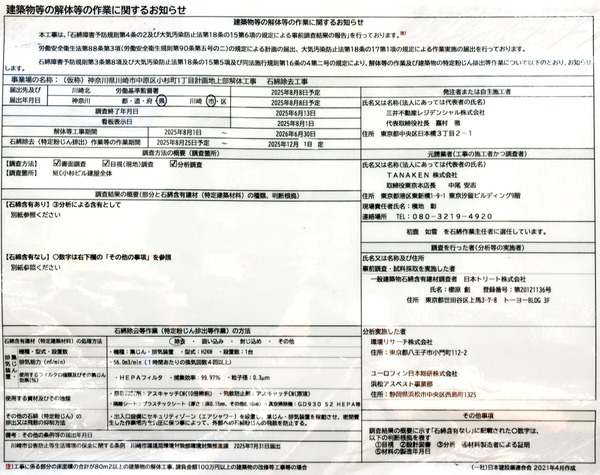 建築物等の解体等の作業に関するお知らせ
建築物等の解体等の作業に関するお知らせ
本工事は、「石綿障害予防規則第4条の2及び大気汚染防止法第18条の15第6項の規定による事前調査結果の報告」を行っております。注)
労働安全衛生法第88条第3項(労働安全衛生規則第90条第五号の二)の規定による計画の届出、大気汚染防止法第18条の17第1項の規定による作業実施の届出を行っております。
石綿障害予防規則第3条第8項及び大気汚染防止法第18条の15第5項及び同法施行規則第16条の4第二号の規定により、解体等の作業及び建築物の特定粉じん排出等作業について以下のとおり、お知らせします。
事業場の名称: (仮称)神奈川県川崎市中原区小杉町1丁目計画地上部解体工事 石綿除去工事
届出先及び
届出年月日
川崎北 労働基準監督署
2025年8月8日予定
神奈川 都・道・府・県 川崎 市・区
2025年8月8日予定
調査終了年月日
2025年6月13日
看板表示日
2025年8月1日
解体等工事期間
2025年8月1日 ~ 2026年6月30日
石綿除去(特定粉じん排出)作業等の作業期間
2025年8月25日予定 ~ 2025年12月 1日 定
調査方法の概要(調査箇所)
【調査方法】 ☑書面調査 ☑目視(現地)調査 ☑分析調査
【調査箇所】 NEC小杉ビル建屋全体
調査結果の概要(部分と石綿含有建材(特定建築材料)の種類、判断根拠)
【石綿含有あり】③分析による含有として
別紙参照ください
【石綿含有なし】〇数字は右下欄の「その他の事項」を参照
別紙参照ください
石綿除去等作業(特定粉じん排出等作業)の方法
石綿含有建材(特定建築材料)の処理方法
除去 ・ 囲い込み ・ 封じ込め ・ その他
集じん・排気装置
機種・型式・設置数
機種:集じん・排気装置 型式:HZKW 設置数:1台
排気能力(㎥/min)
56.0m3/min(1時間あたりの換気回数4回以上)
使用するフィルタの種類及びその集じん効率(%)
・HEPAフィルタ ・捕集効率:99.97% ・粒子径:0.3μm
使用する資材及びその種類
その他の石綿(特定粉じん)の排出又は飛散の抑制方法
備考:その他の条例等の届出年月日
川崎市公害防止等生活環境の保全に関する条例 川崎市環境局環境対策部環境対策推進課 2025年7月31日届出
注)工事に係る部分の床面積の合計が80m2以上の建築物の解体工事、請負金額100万円以上の建築物の改修等工事等の場合
発注者または自主施工者
氏名又は名称(法人にあっては代表者の氏名)
三井不動産レジデンシャル株式会社
代表取締役社長 嘉村 徹
住所 東京都中央区日本橋3丁目2-1
元請業者(工事の施工者かつ調査者)
氏名又は名称(法人にあっては代表者の氏名)
TANAKEN 株式会社
取締役東京本店長 中尾 安志
住所 東京都港区東新橋1-9-1 東京汐留ビルディング9階
現場責任者氏名:横地 彰
連絡場所 TEL:080-3219-4920
初鹿 如雪 を石綿作業主任者に選任しています。
調査を行った者(分析等の実施者)
氏名又は名称及び住所
事前調査・試料採取を実施した者
一般建築物石綿含有建材調査者 日本トリート株式会社
氏名:櫻原 創 登録番号:第20121136号
住所 東京都世田谷区上馬3-7-8 トーヨーBLDG 3F
分析実施した者
環境リサーチ株式会社
住所:東京都八王子市小門町112-2
ユーロフィン日本総研株式会社
浜松アスベスト事業部
住所:静岡県浜松市中央区西島町1325
その他事項
調査結果の概要に示す「石綿含有なし」に記載された〇数字は、
以下の判断根拠を表す
①目視 ②設計図書 ③分析 ④材料製造者による証明
⑤材料の製造年月日
(一社)日本建設業連合会 2021年4月作成